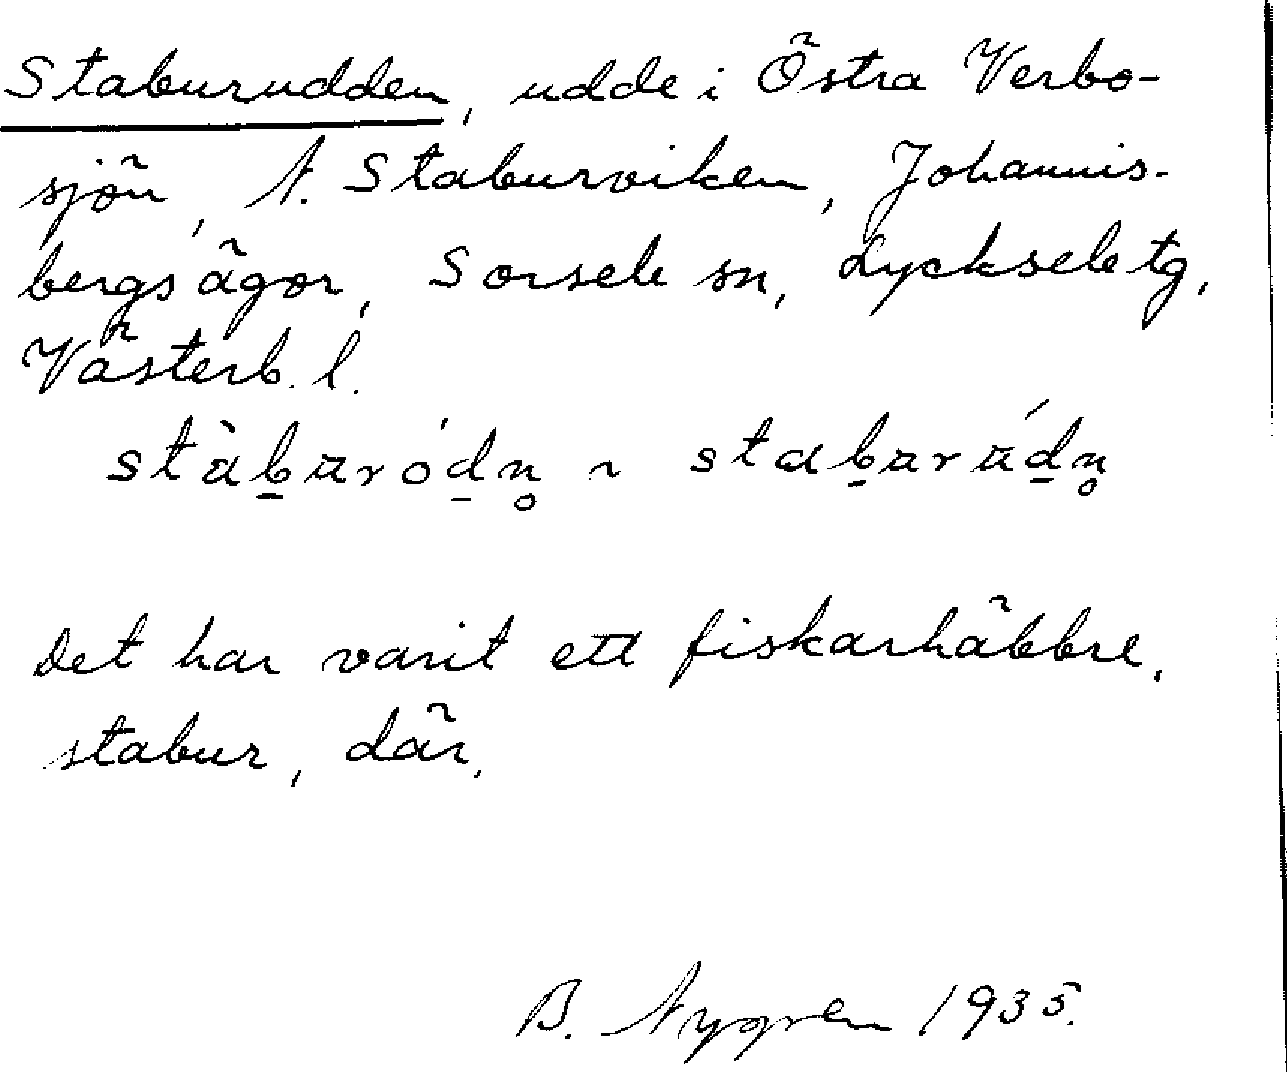 Staburudden, udde i Östra Verbo-
sjön, N. Staburviken, Johannis-
bergs ägor, Sorsele sn, Lycksele tg,
Västerb. l.
Det har varit ett fiskarhäbbre,
stabur, där.
B. Nygren 1935.